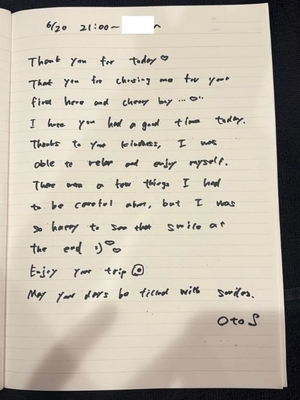 6/20 21:00~
Thank you for today ♡
Thank you for choosing me for your
first here and cherry boy...♡
I hope you had a good time today.
Thanks to your kindness, I was
able to relax and enjoy myself.
There were a few things I had
to be careful about, but I was
so happy to see that smile at
the end :) ♡♡
Enjoy your trip
May your days be filled with smiles.